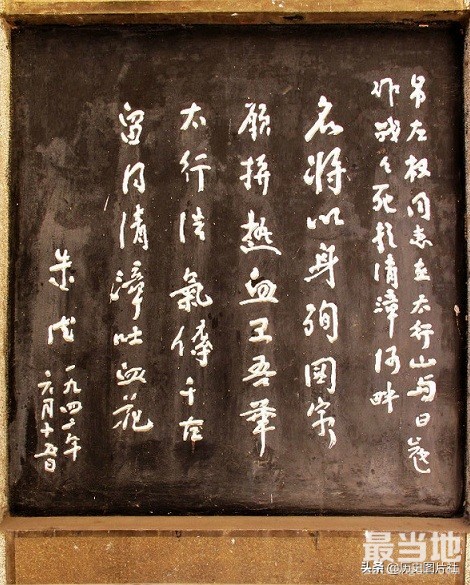 吊左权同志在太行山与日寇
作战々死於清漳河畔
名将以身殉国家
願拼热血卫吾華
太行浩氣傳千古
留得清漳吐血花
朱德
一九四二年
六月十五日
最当地
头条 @历史图片社